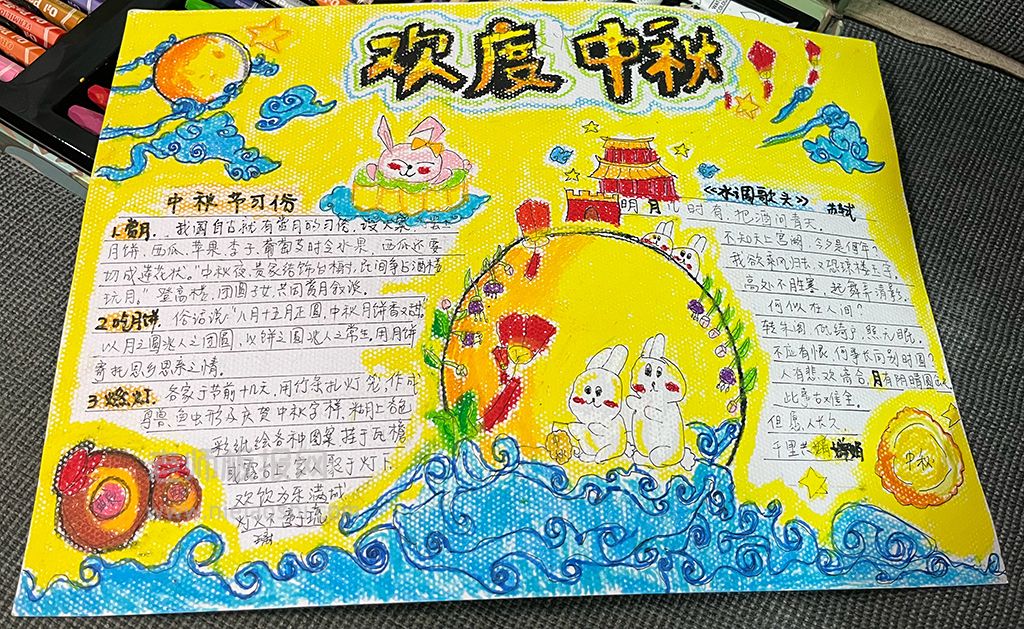 欢度中秋
中秋节习俗
1.赏月. 我国自古就有赏月的习俗,
月饼、西瓜、苹果、李子、葡萄等时令水果,西瓜还要
切成莲花状。"中秋夜,贵家结饰台榭,民间争占酒楼
玩月。"登高楼,团圆子女,共同赏月叙谈。
2.吃月饼. 俗话说:"八月十五月正圆,中秋月饼香又甜"
以月之圆兆人之团圆,以饼之圆兆人之常生,用月饼
寄托思乡思亲之情。
3.燃灯. 各家于节前十几天,用竹条扎灯笼,作成
鸟兽、鱼虫形 庆贺中秋字样,糊上各色
彩纸绘各种图案 挂于瓦檐
家人聚于灯下
欢饮为乐 满城
灯火不啻于琉
璃
《水调歌头》
苏轼
明月几时有,把酒问青天。
不知天上宫阙,今夕是何年?
我欲乘风归去,又恐琼楼玉宇,
高处不胜寒,起舞弄清影,
何似在人间?
转朱阁,低绮户,照无眠,
不应有恨,何事长向别时圆?
人有悲欢离合,月有阴晴圆缺
此事古难全。
但愿人长久,
千里共婵娟
中秋